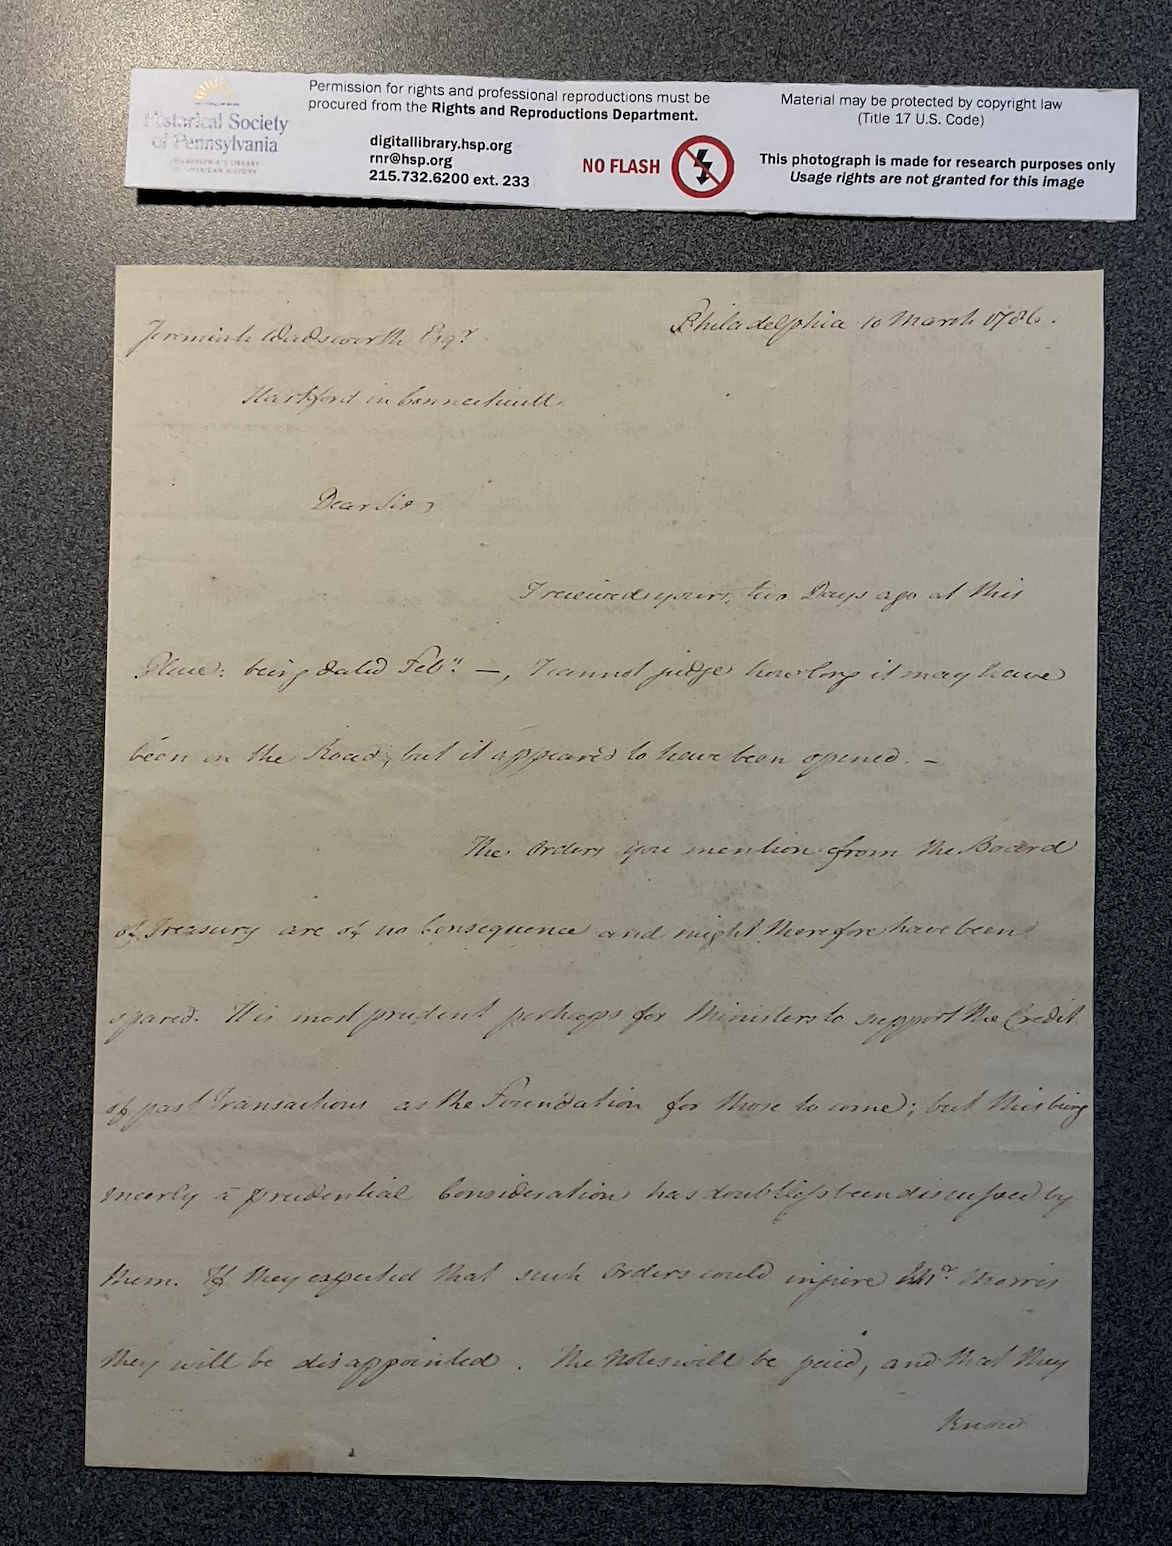 Historical Society
of Pennsylvania
PHILADELPHIA'S LIBRARY
OF AMERICAN HISTORY
Permission for rights and professional reproductions must be
procured from the Rights and Reproductions Department.
digitallibrary.hsp.org
rnr@hsp.org
215.732.6200 ext. 233
NO FLASH
Material may be protected by copyright law
(Title 17 U.S. Code)
This photograph is made for research purposes only
Usage rights are not granted for this image
Philadelphia 10 March 1786.
Jeremiah Wadsworth Esqr.
Hartford in Connecticutt.
Dear Sir,
I received yours, two Days ago at this
Place: being dated Feby. —, I cannot judge how long it may have
been on the Road, but it appeared to have been opened. —
The Orders you mention from the Board
of Treasury are of no Consequence and might therefore have been
spared. It is most prudent perhaps for Ministers to support the Credit
of past Transactions as the Foundation for those to come; but this being
meerly a prudential Consideration has doubtless been discussed by
them. If they expected that such Orders could injure Mr. Morris
they will be disappointed. The Notes will be paid, and that they
know